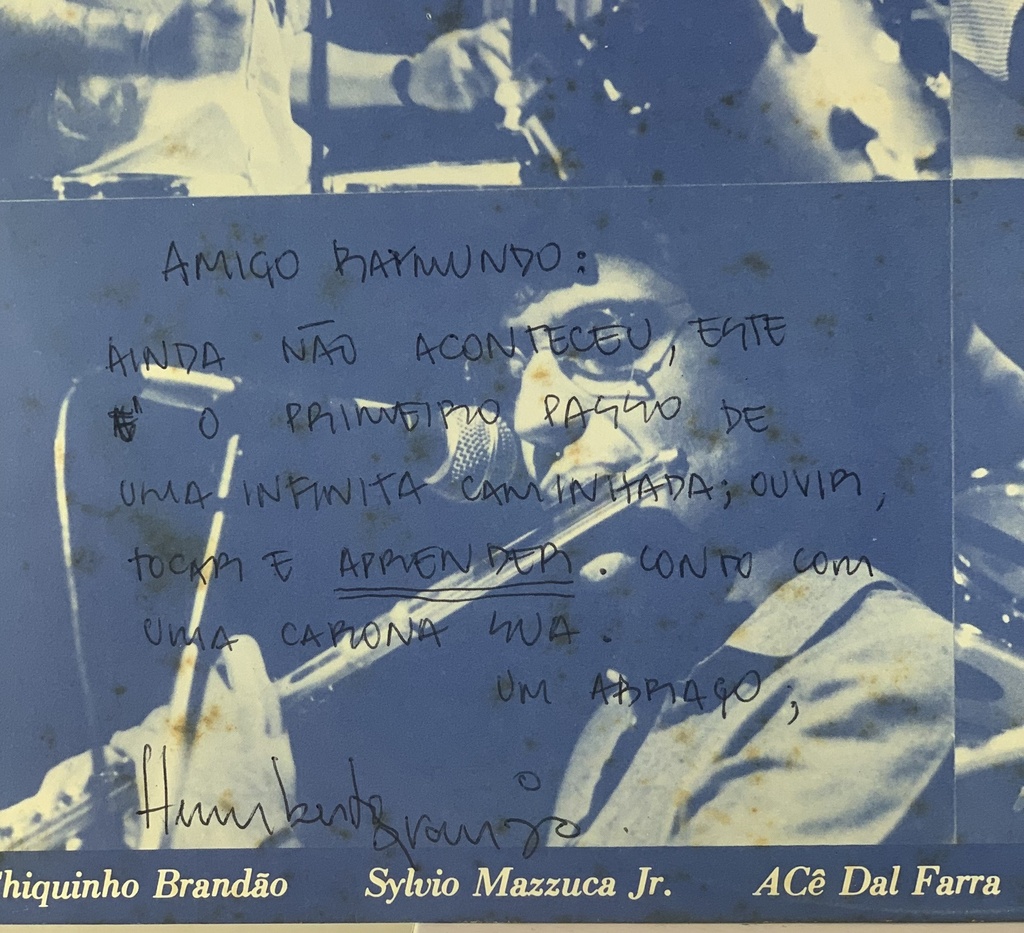 AMIGO RAYMUNDO:
AINDA NÃO ACONTECEU, ESTE
É O PRIMEIRO PASSO DE
UMA INFINITA CAMINHADA; OUVIR,
TOCAR E APRENDER. CONTO COM
UMA CARONA SUA.
UM ABRAÇO,
Humberto Araujo.
Chiquinho Brandão Sylvio Mazzuca Jr. ACê Dal Farra